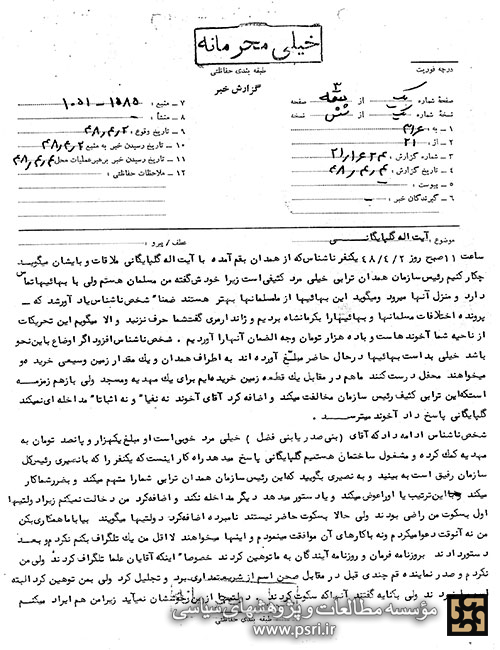 خیلی محرمانه
طبقه بندی حفاظتی
درجه فوریت
گزارش خبر
صفحهٔ شماره یک از سه صفحه
نسخهٔ شماره یک از شش نسخه
۱ - به : ۳۱۶
۲ - از : ۲۱
۳ - شماره گزارش :
۴ - تاریخ گزارش : ۴۸٫۴٫۴
۵ - پیوست :
۶ - گیرندگان خبر :
۷ - منبع : ۱۵۸۵ - ۱۰۵۱
۸ - منشأ :
۹ - تاریخ وقوع : ۴۸٫۴٫۲
۱۰ - تاریخ رسیدن خبر به منبع ۴۸٫۴٫۲
۱۱ - تاریخ رسیدن خبر برهبرعملیات محل ۴۸٫۴٫۴
۱۲ - ملاحظات حفاظتی :
موضوع : آیت اله گلپایگانی عطف / پیرو :
ساعت ۱۱ صبح روز ۴۸/۴/۲ یکنفر ناشناس که از همدان بقم آمده با آیت اله گلپایگانی ملاقات و بایشان میگوید
چکار کنیم رئیس سازمان همدان ترابی خیلی مرد کثیفی است زیرا خودش گفته من مسلمان هستم ولی با بهائیها تماس
دارد و منزل آنها میرود ومیگوید این بهائیها از ماسلمانها بهتر هستند ضمنا" شخص ناشناس یاد آورشد که -
پرونده اختلافات مسلمانها و بهائیها را بکرمانشاه بردیم و ژاندارمری گفت شما حرف نزنید و الا میگویم این تحریکات
از ناحیه شما آخوندهاست و باده هزار تومان وجه الضمان آنها را آوردیم . شخص ناشناس افزود اگر اوضاع باین نحو
باشد خیلی بد است بهائیها در حال حاضر مبلغ آورده اند به اطراف همدان و یک مقدار زمین وسیعی خریده و
میخواهند محفل درست کنند ماهم در مقابل یک قطعه زمین خریده ایم برای یک مهدیه ومسجد ولی بازهم زمزمه
است که این ترابی کثیف رئیس سازمان مخالفت میکند و اضافه کرد آقای آخوند نه نفیا" و نه اثباتا" مداخله ای نمیکند
گلپایگانی پاسخ داد آخوند میترسد .
شخص ناشناس ادامه داد که آقای (بنی صدر یا بنی فضل) خیلی مرد خوبی است او مبلغ یکهزار و پانصد تومان به
مهدیه کمک کرده و مشغول ساختمان هستیم گلپایگانی پاسخ میدهد راه کار اینست که یکنفر را که با نصیری رئیس کل
سازمان رفیق است به بینید و به نصیری بگویید که این رئیس سازمان همدان ترابی شما را متهم میکند و بضرر شما کار
میکند با این ترتیب یا او را عوض میکند و یا دستور میدهد دیگر مداخله نکند و اضافه کرد من دخالت نمیکنم زیرا دولتیها
اول بسکوت من راضی بودند ولی حالا بسکوت حاضر نیستند نامبرده اضافه کرد دولتیها میگویند بیا باما همکاری بکن
من نه آنوقت دعوا میکردم ونه باکارهای آن موافقت مینمودم و اینها میخواهند لا اقل من یک تلگراف بکنم نکردم و بعد
دستور دادند بروزنامه فرمان و روزنامه آیندگان به ما توهین کردند خصوصا" اینکه آقایان علما تلگراف کردند ولی من
نکردم و صدر نماینده قم چندی قبل در مقابل صحن اسم از شریعتمداری برد و تجلیل کرد ولی بمن توهین کرد البته
ولی بکنایه گفتند آنها که سکوت کردند دولتیها از من خوششان نمیآید زیرا من هم ایراد میکنم
طبقه بندی حفاظتی
مؤسسه مطالعات و پژوهشهای سیاسی
www.psri.ir